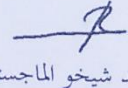 شيخو الماجست